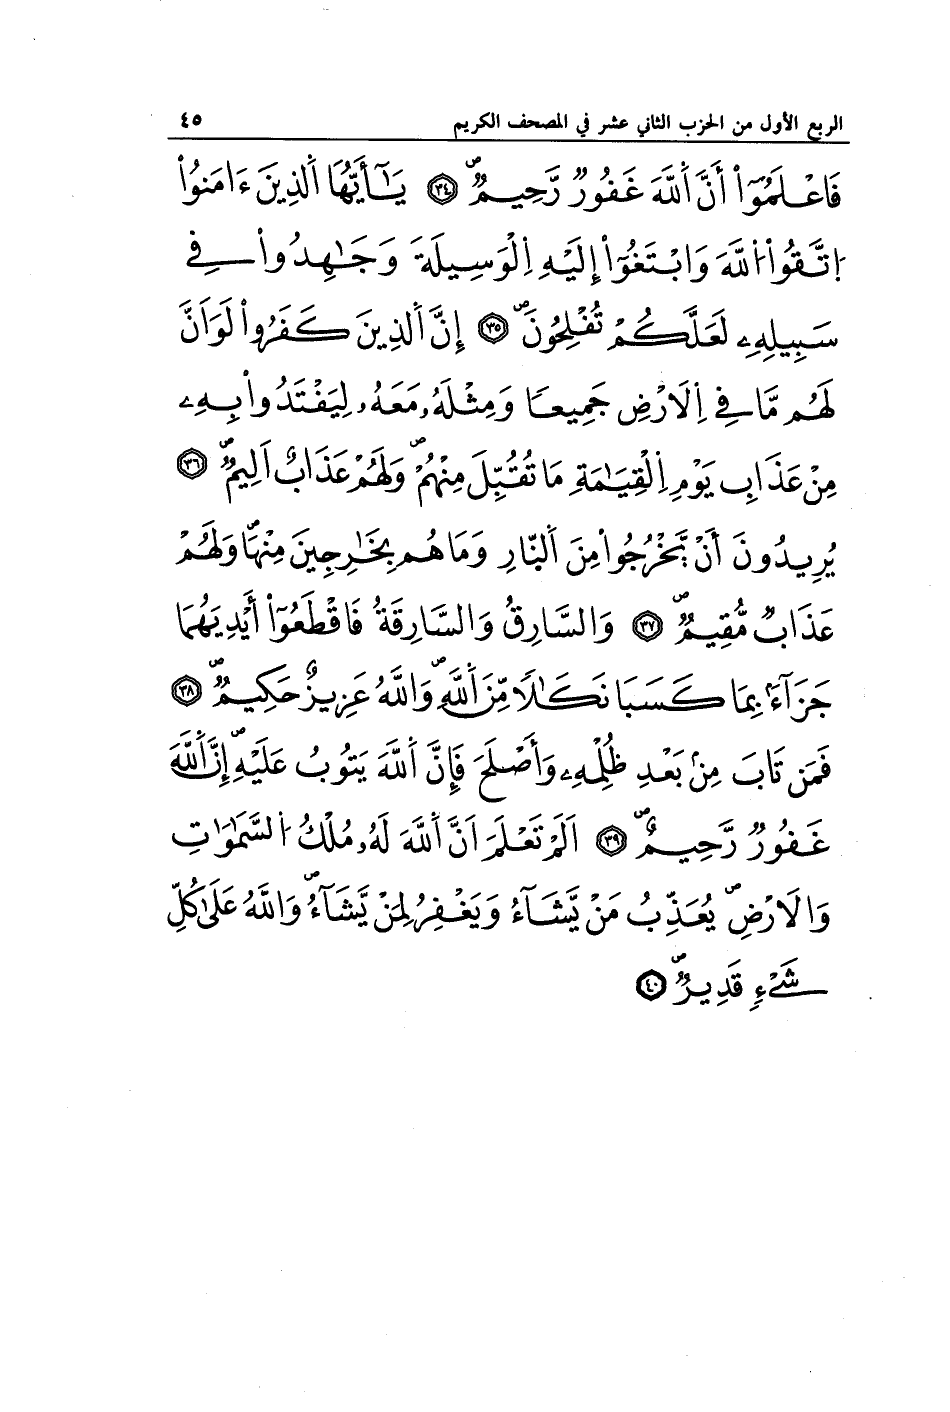 الربع الأول من الحزب الثاني عشر في المصحف الكريم ٤٥
فَاعْلَمُوٓاْ أَنَّ اَ۬للَّهَ غَفُورٞ رَّحِيمٞۖ ٣٤ يَٰٓأَيُّهَا اَ۬لذِينَ ءَامَنُواْ
اُ۪تَّقُواْ اُ۬للَّهَ وَابْتَغُوٓاْ إِلَيْهِ اِ۬لْوَسِيلَةَ وَجَٰهِدُواْ فِے
سَبِيلِهِۦ لَعَلَّكُمْ تُفْلِحُونَۖ ٣٥ إِنَّ اَ۬لذِينَ كَفَرُواْ لَوَ اَنَّ
لَهُم مَّا فِے اِ۬لَارْضِ جَمِيعاٗ وَمِثْلَهُۥ مَعَهُۥ لِيَفْتَدُواْ بِهِۦ
مِنْ عَذَابِ يَوْمِ اِ۬لْقِيَٰمَةِ مَا تُقُبِّلَ مِنْهُمْۖ وَلَهُمْ عَذَابٌ اَلِيمٞۖ ٣٦
يُرِيدُونَ أَنْ يَّخْرُجُواْ مِنَ اَ۬لنَّارِ وَمَا هُم بِخَٰرِجِينَ مِنْهَاۖ وَلَهُمْ
عَذَابٞ مُّقِيمٞۖ ٣٧ وَالسَّارِقُ وَالسَّارِقَةُ فَاقْطَعُوٓاْ أَيْدِيَهُمَا
جَزَآءَۢ بِمَا كَسَبَا نَكَٰلاٗ مِّنَ اَ۬للَّهِۖ وَاللَّهُ عَزِيزٌ حَكِيمٞۖ ٣٨
فَمَن تَابَ مِنۢ بَعْدِ ظُلْمِهِۦ وَأَصْلَحَ فَإِنَّ اَ۬للَّهَ يَتُوبُ عَلَيْهِۖ إِنَّ اَ۬للَّهَ
غَفُورٞ رَّحِيمٌۖ ٣٩ اَلَمْ تَعْلَمَ اَنَّ اَ۬للَّهَ لَهُۥ مُلْكُ اُ۬لسَّمَٰوَٰتِ
وَالَارْضِۖ يُعَذِّبُ مَنْ يَّشَآءُ وَيَغْفِرُ لِمَنْ يَّشَآءُۖ وَاللَّهُ عَلَىٰ كُلِّ
شَےْءٖ قَدِيرٞۖ ٤٠